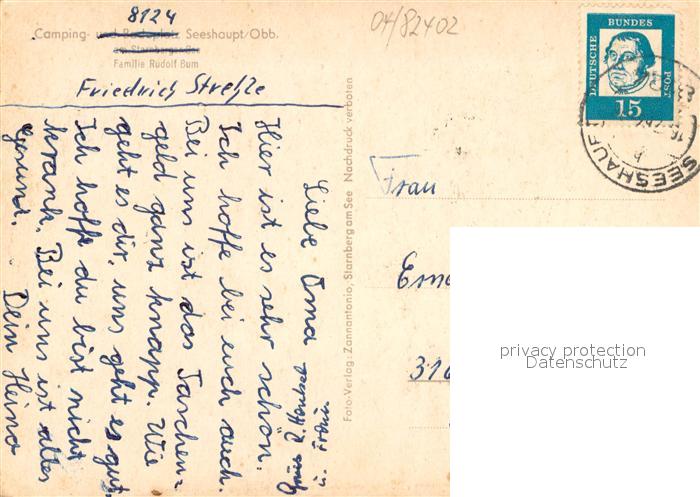 8124
04/82402
Camping- und Badeplatz Seeshaupt/Obb.
am Starnberger See
Familie Rudolf Bum
Friedrich Strehle
Liebe Oma
u. Frau
Hier ist es sehr schön.
Ich hoffe bei euch auch.
Bei uns ist das Taschen=
geld ganz knapp. Wie
geht es dir, uns geht es gut.
Ich hoffe du bist nicht
krank. Bei uns ist alles
gesund.
Dein Heino
Foto-Verlag: Zannantonio, Starnberg am See Nachdruck verboten
DEUTSCHE
BUNDES
POST
15
SEESHAUPT
Frau
privacy protection
Datenschutz